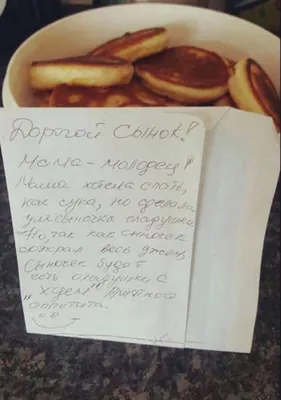 Дорогой сынок!
Мама - молодец!
Мама хотела спать,
как сука, но сделала
для сыночка оладушки.
Но, так как сыночек
сожрал весь джем,
сыночек будет
есть оладушки с
"хуем". Приятного
аппетита.